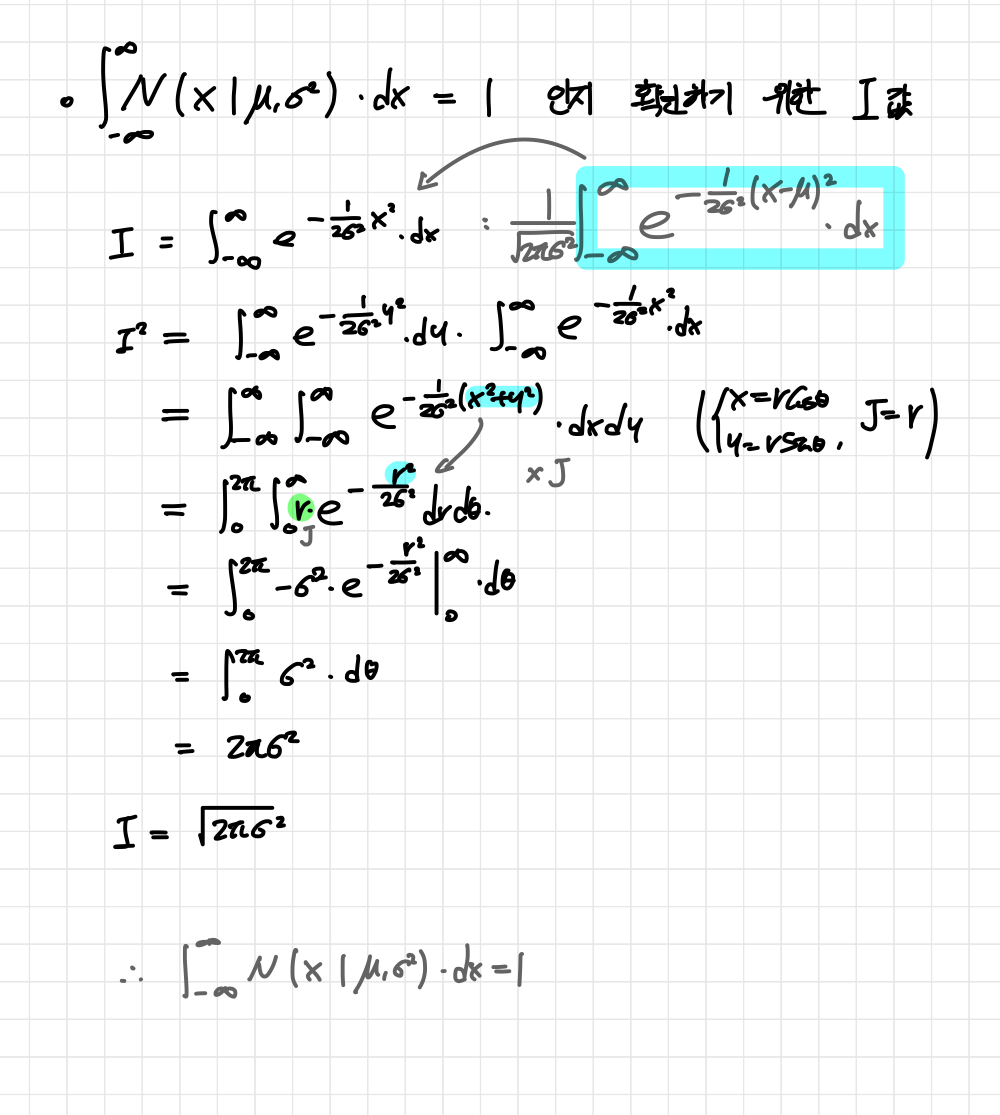 • ∫_{-∞}^{∞} N(x | μ, σ²) · dx = 1 인지 확인하기 위한 I 값
I = ∫_{-∞}^{∞} e^{-\frac{1}{2σ²}x²} · dx : \frac{1}{\sqrt{2πσ²}} ∫_{-∞}^{∞} e^{-\frac{1}{2σ²}(x-μ)²} · dx
I² = ∫_{-∞}^{∞} e^{-\frac{1}{2σ²}y²} · dy · ∫_{-∞}^{∞} e^{-\frac{1}{2σ²}x²} · dx
= ∫_{-∞}^{∞} ∫_{-∞}^{∞} e^{-\frac{1}{2σ²}(x²+y²)} · dxdy ({x = rcosθ, y = rsinθ, J = r)
× J
= ∫_{0}^{2π} ∫_{0}^{∞} r · e^{-\frac{r²}{2σ²}} drdθ.
J
= ∫_{0}^{2π} -σ² · e^{-\frac{r²}{2σ²}} |_{0}^{∞} · dθ
= ∫_{0}^{2π} σ² · dθ
= 2πσ²
I = \sqrt{2πσ²}
∴ ∫_{-∞}^{∞} N(x | μ, σ²) · dx = 1